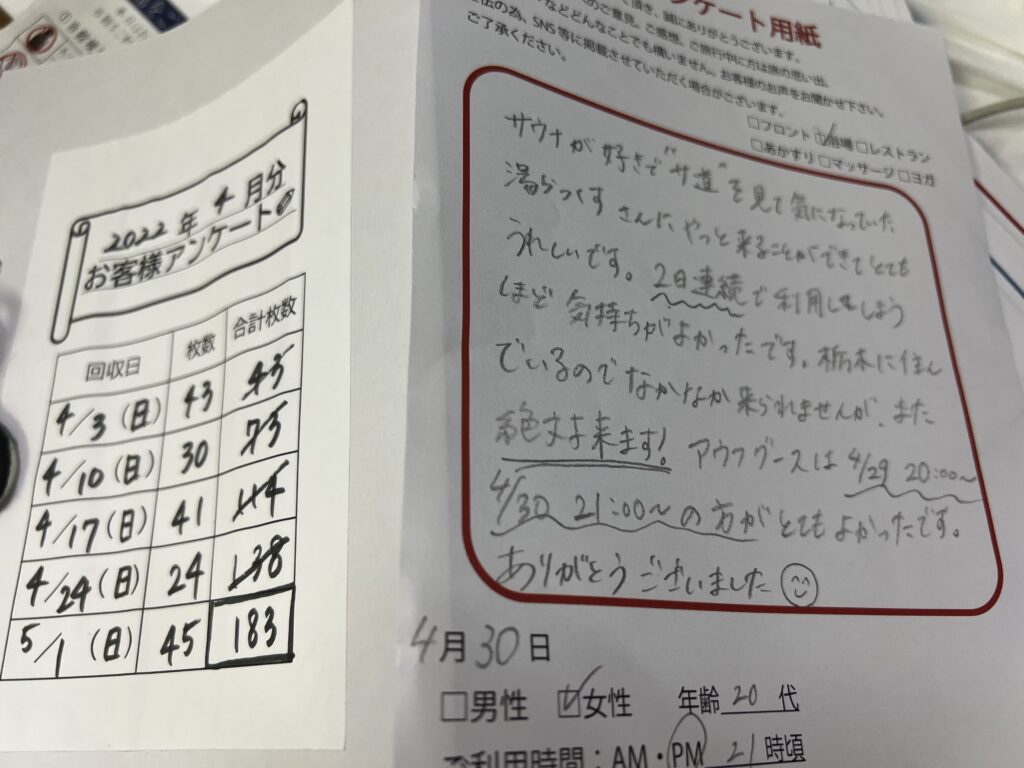 2022年 4月分
お客様アンケート
回収日 枚数 合計枚数
4/3 (日) 43 43
4/10 (日) 30 73
4/17 (日) 41 114
4/24 (日) 24 138
5/1 (日) 45 183
ンケート用紙
て頂き、誠にありがとうございます。
のご意見、ご感想、ご旅行中に方は旅の思い出、
などどんなことでも構いません。お客様のお声をお聞かせ下さい。
伝の為、SNS等に掲載させていただく場合がございます。
ご了承ください。
□フロント ☑浴場 □レストラン
□あかすり □マッサージ □ヨガ
サウナが好きで"サ道"を見て気になっていた
湯らっくすさんにやっと来ることができてとても
うれしいです。2日連続で利用してしまう
ほど気持ちがよかったです。栃木に住ん
でいるのでなかなか来られませんが、また
絶対来ます! アウフグースは 4/29 20:00〜
4/30 21:00〜の方がとてもよかったです。
ありがとうございました
4月30日
□男性 ☑女性 年齢 20 代
ご利用時間:AM・PM 21 時頃